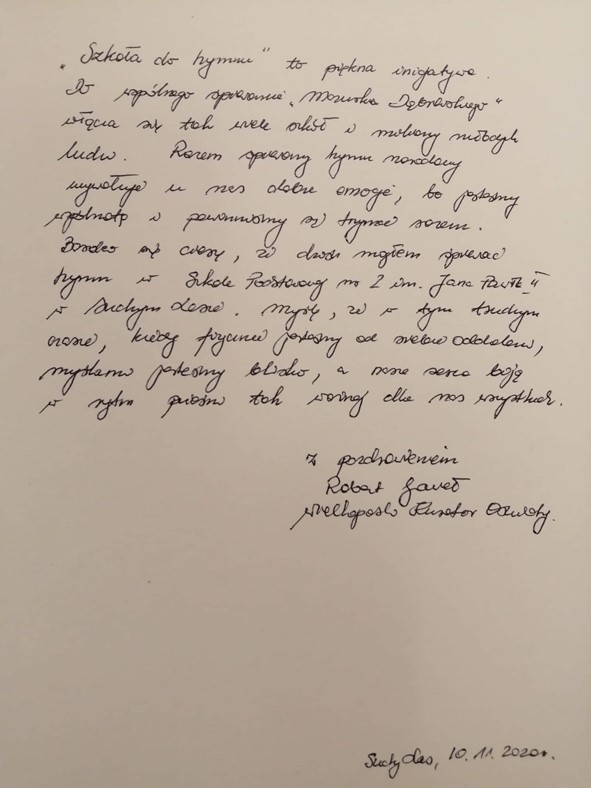 „Szkoła do hymnu" to piękna inicjatywa.
Do wspólnego śpiewania „Mazurka Dąbrowskiego"
włącza się tak wiele szkół i miliony młodych
ludzi. Razem śpiewany hymn narodowy
wywołuje w nas dobre emocje, bo jesteśmy
wspólnotą i powinniśmy się trzymać razem.
Bardzo się cieszę, że dziś mogłem śpiewać
hymn w Szkole Podstawowej nr 2 im. Jana Pawła II
w Suchym Lesie. Myślę, że w tym trudnym
czasie, kiedy fizycznie jesteśmy od siebie oddaleni,
myślami jesteśmy blisko, a nasze serca biją
w rytm pieśni tak ważnej dla nas wszystkich.
Z pozdrowieniem
Robert Gaweł
Wielkopolski Kurator Oświaty.
Suchy Las, 10.11.2020r.